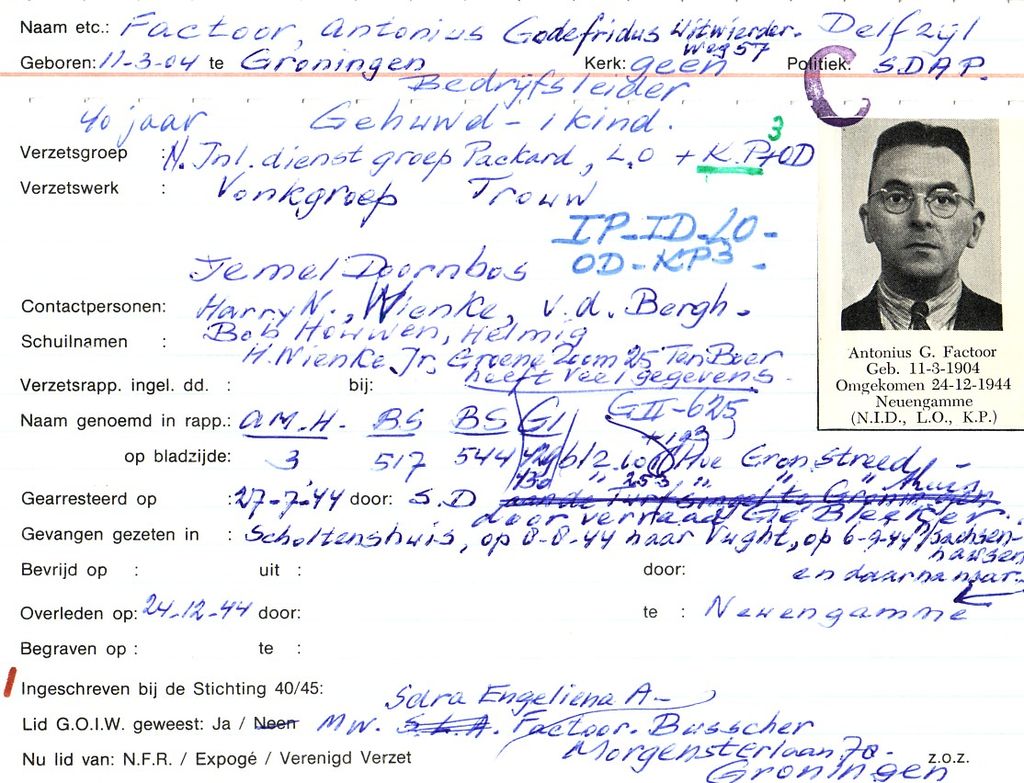 Naam etc.: Factoor, Antonius Godefridus Uitwierder- Delfzijl
weg 57
Geboren: 11-3-04 te Groningen Kerk: geen Politiek: S.D.A.P.
Bedrijfsleider C
40 jaar Gehuwd - 1 kind.
3
Verzetsgroep : N. Inl. dienst groep Packard, L.O + K.P + OD
Verzetswerk : Vonkgroep Trouw
IP-ID-LO-
OD-KP3-
Jemel Doornbos
Contactpersonen: Harry N., Wienke, v.d. Bergh.
Schuilnamen : Bob Houwen, Helmig
H. Nienke Jr, Groene Zoom 25 Ten Boer
Verzetsrapp. ingel. dd. : bij: heeft veel gegevens.
Antonius G. Factoor
Geb. 11-3-1904
Omgekomen 24-12-1944
Neuengamme
(N.I.D., L.O., K.P.)
Naam genoemd in rapp.: A.M.H. BS BS GI GII-625
op bladzijde: 3 517 544
430 " 253 " " "
Gearresteerd op : 27-7-'44 door: S.D
door verraad Bleeker.
Gevangen gezeten in : Scholtenshuis, op 8-8-44 naar Vught, op 6-9-44 Sachsen-
hausen
Bevrijd op : uit : door: en daarna naar
Overleden op: 24-12-'44 door: te : Neuengamme
Begraven op : te :
Ingeschreven bij de Stichting 40/45:
Sara Engeliena A-
Lid G.O.I.W. geweest: Ja / Neen Mw. Factoor-Busscher
Morgensterlaan 70-
Nu lid van: N.F.R. / Expogé / Verenigd Verzet Groningen z.o.z.